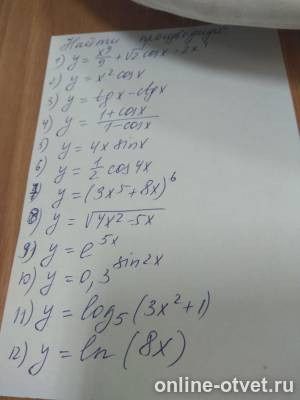 Найти производную
1) y = x⁹/9 + √2 cosx + 2x
2) y = x² cosx
3) y = tgx - ctgx
4) y = (1+cosx)/(1-cosx)
5) y = 4x sinx
6) y = 1/2 cos4x
7) y = (3x⁵ + 8x)⁶
8) y = √(4x² - 5x)
9) y = e^(5x)
10) y = 0,3^(sin2x)
11) y = log₅ (3x² + 1)
12) y = ln (8x)
online-otvet.ru